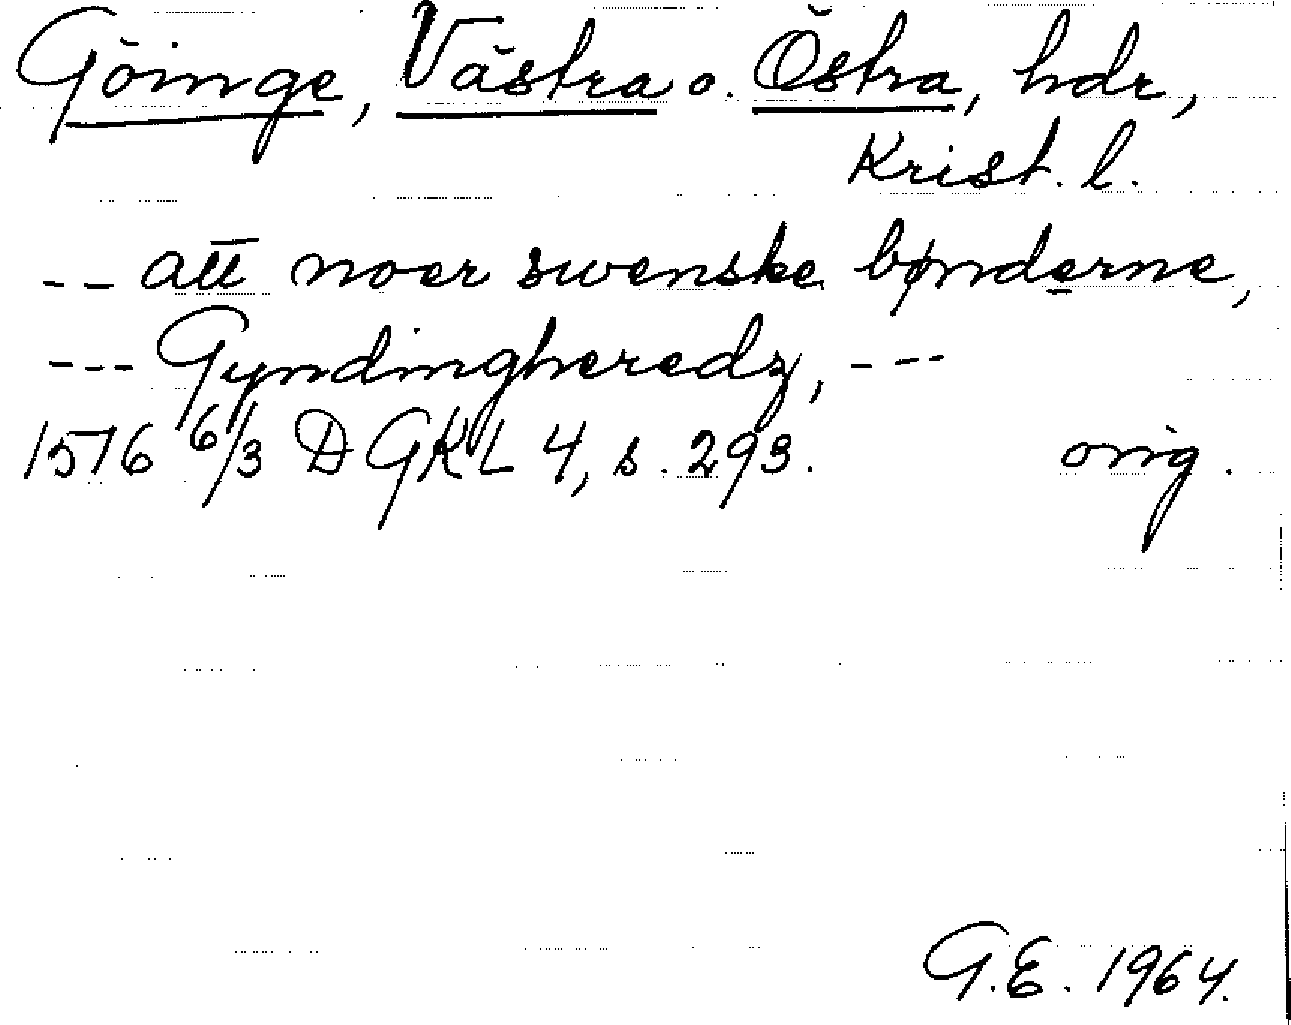 Göinge, Västra o. Östra, hdr,
Krist. l.
-- att noer swenske bønderne,
--- Gyndingheredz, ---
1576 6/3 DGKL 4, s. 293. orig.
G.E. 1964.